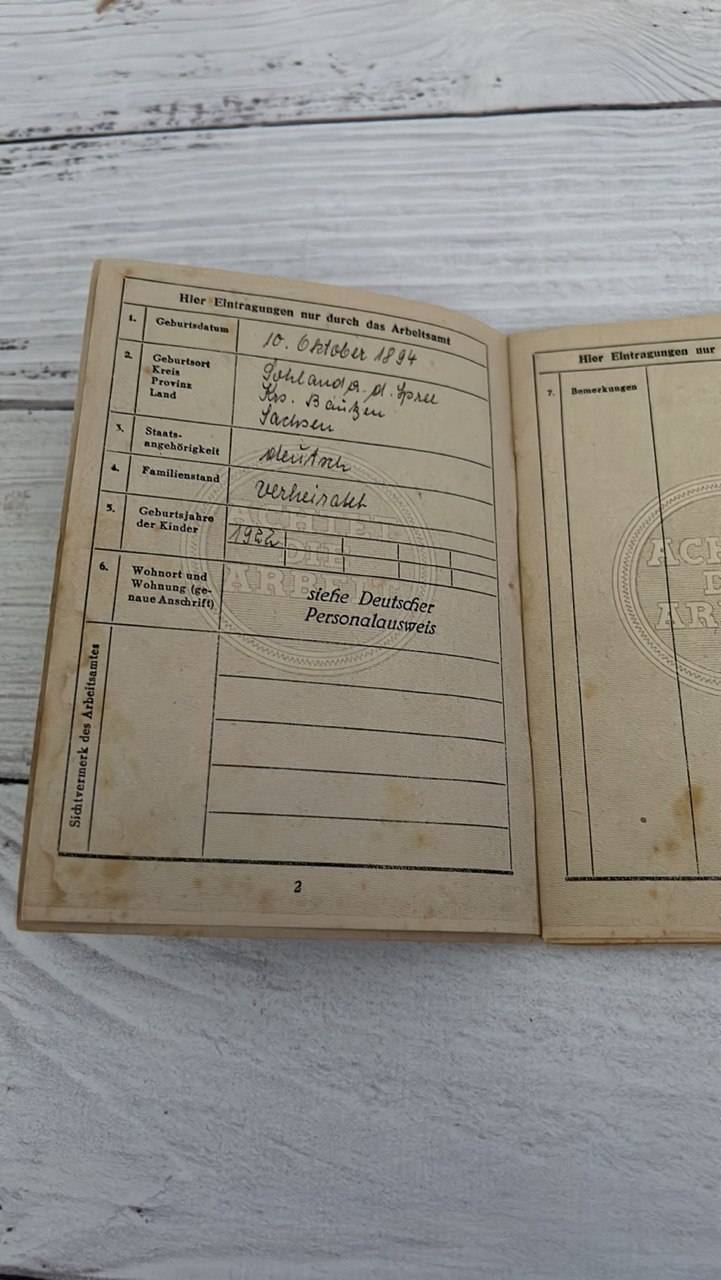 Hier Eintragungen nur durch das Arbeitsamt
1. Geburtsdatum 10. Oktober 1894
2. Geburtsort Sohland a. d. Spree
Kreis Krs. Bautzen
Provinz Sachsen
Land
3. Staats-
angehörigkeit deutsch
4. Familienstand verheiratet
5. Geburtsjahre
der Kinder 1922
6. Wohnort und
Wohnung (ge-
naue Anschrift)
siehe Deutscher
Personalausweis
Sichtvermerk des Arbeitsamtes
ACHTET
DIE
ARBEIT
2
Hier Eintragungen nur
7. Bemerkungen
ACH
D
AR